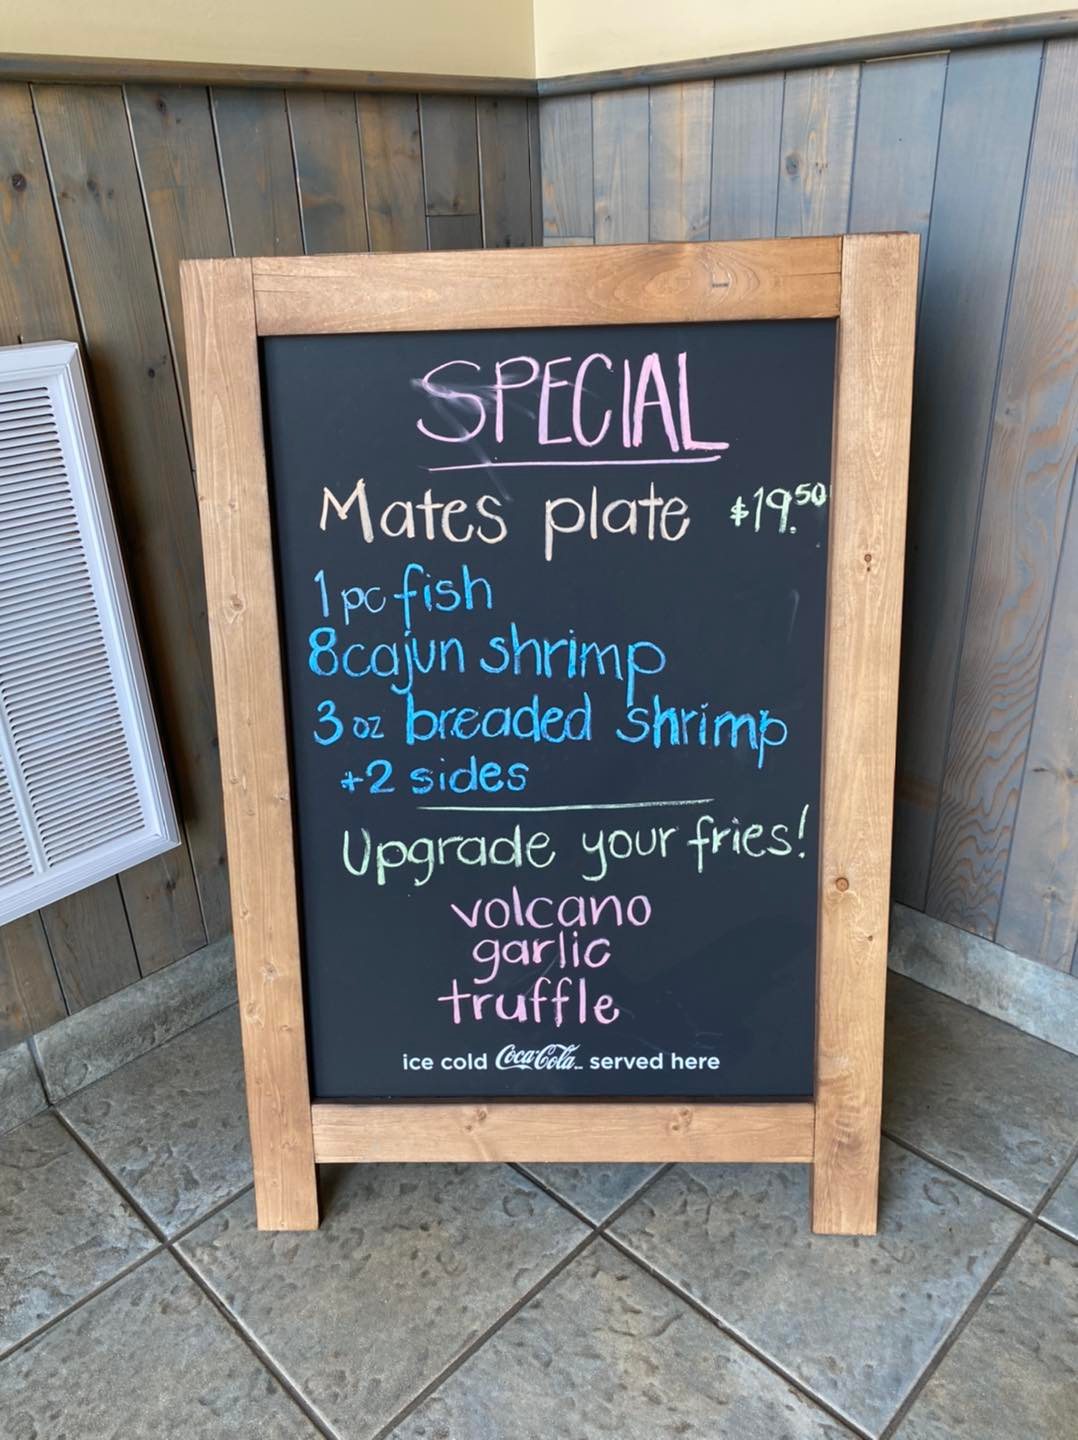 SPECIAL
Mates plate $19.50
1 pc fish
8 cajun shrimp
3 oz breaded shrimp
+2 sides
Upgrade your fries!
volcano
garlic
truffle
ice cold Coca-Cola served here